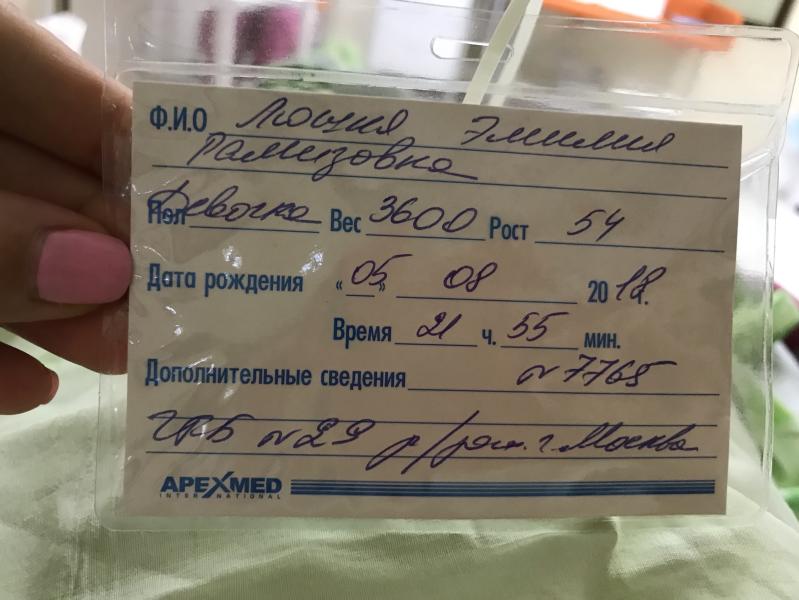 Ф.И.О Люция Эмилия
Рамизовна
Пол Девочка Вес 3600 Рост 54
Дата рождения "05" 08 2018.
Время 21 ч. 55 мин.
Дополнительные сведения N7765
ГКБ N29 р/ г. Москва
APEXMED
INTERNATIONAL